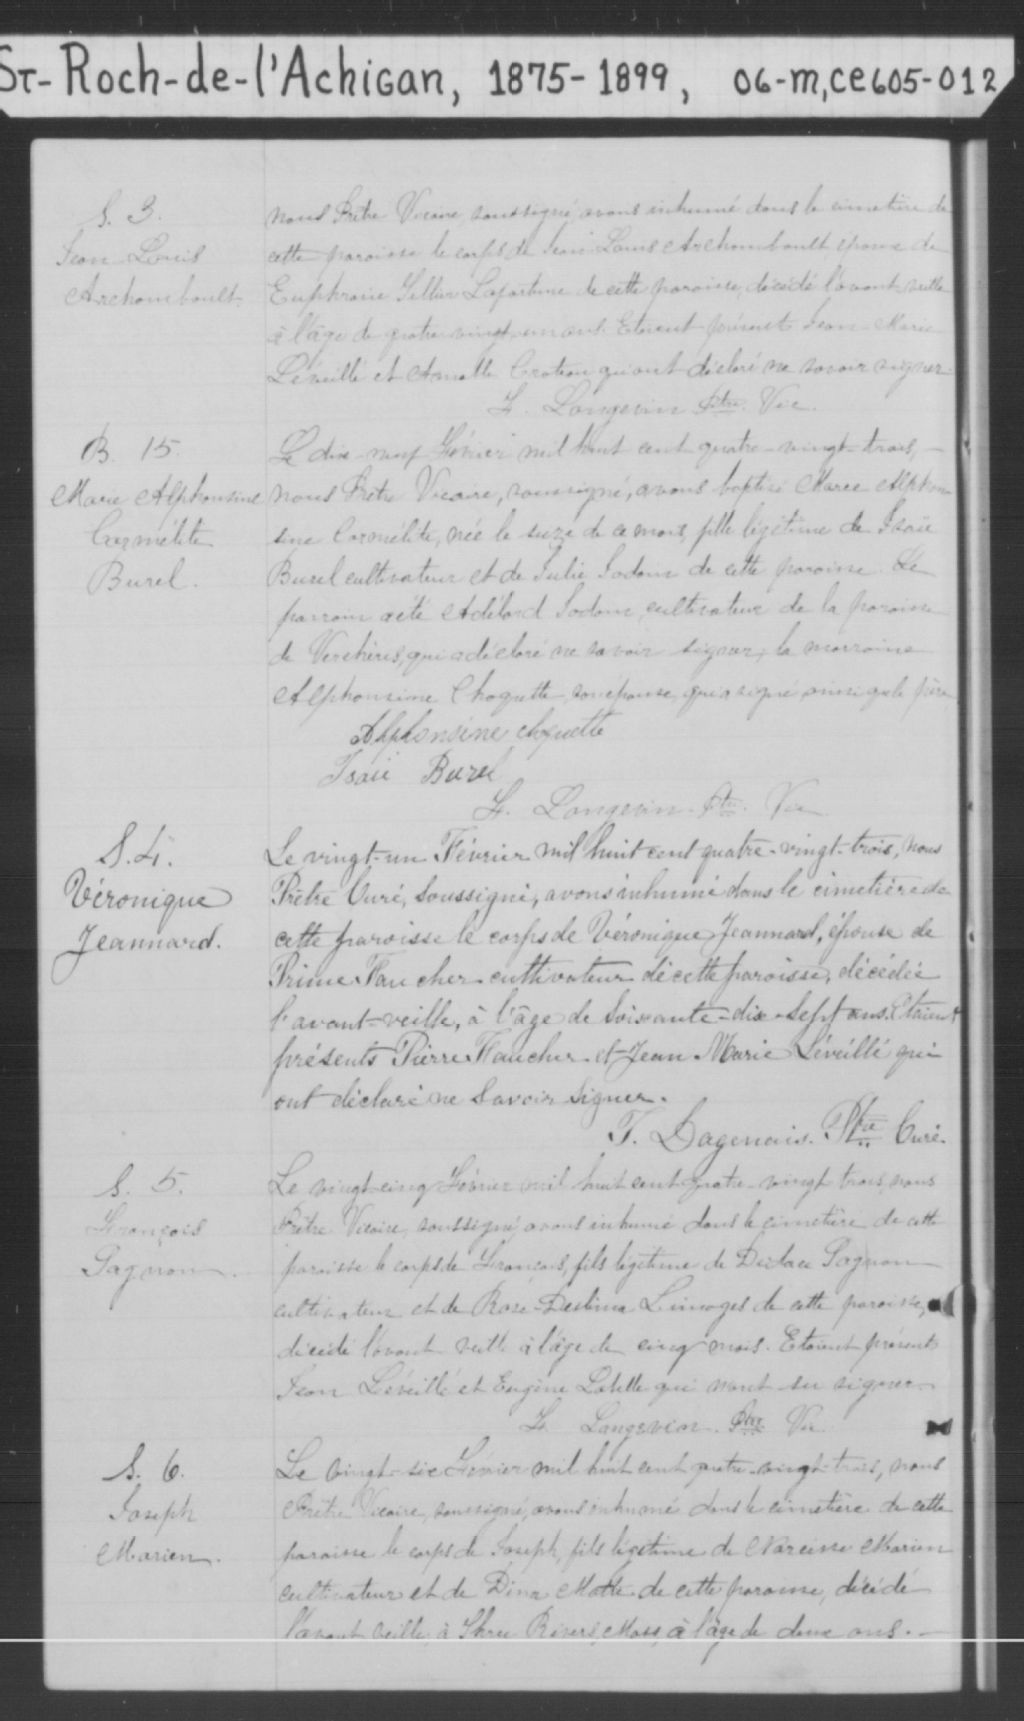 St-Roch-de-l'Achigan, 1875-1899, 06-m,ce605-012
S. 3.
Jean Louis
Archambault.
nous Prêtre Vicaire soussigné, avons inhumé dans le cimetière de
cette paroisse le corps de Jean Louis Archambault, époux de
Euphrosie Lafortune de cette paroisse, décédé l'avant-veille
à l'âge de quatre-vingt-un ans. Etaient présent Jean-Marie
Léveillé et Croteau qui ont déclaré ne savoir signer.
Langevin Ptre. Vic.
B. 15.
Marie Alphonsine
Carmélite
Burel.
Le dix-neuf Février mil huit cent quatre-vingt-trois,
nous Prêtre Vicaire, soussigné, avons baptisé Marie Alphon
sine Carmélite, née le seize de ce mois, fille légitime de Isaïe
Burel cultivateur et de Julie Jodoin de cette paroisse. Le
parrain a été Adélard Jodoin, cultivateur de la paroisse
de Verchères, qui a déclaré ne savoir signer, la marraine
Alphonsine Choquette son épouse, qui a signé ainsi que le père.
Alphonsine choquette
Isaïe Burel
Langevin. Ptre. Vic
S. 4.
Véronique
Jeannard.
Le vingt-un Février mil huit cent quatre-vingt-trois, nous
Prêtre Curé, Soussigné, avons inhumé dans le cimetière de
cette paroisse le corps de Véronique Jeannard, épouse de
Prime Faucher cultivateur de cette paroisse, décédée
l'avant-veille, à l'âge de Soixante-dix-Sept ans. Etaient
présents Pierre Faucher et Jean Marie Léveillé qui
ont déclaré ne Savoir Signer.
T. Dagenais. Ptre Curé.
S. 5.
François
Gagnon.
Le vingt-cinq Février mil huit cent quatre-vingt trois, nous
Prêtre Vicaire, soussigné, avons inhumé dans le cimetière de cette
paroisse le corps de François, fils légitime de Gagnon
cultivateur et de Rose-Delima Limoges de cette paroisse,
décédé l'avant veille à l'âge de cinq mois. Etaient présents
Jean Léveillé et Eugène Labelle qui n'ont su signer.
Langevin. Ptre Vic
S. 6.
Joseph
Marien.
Le vingt-six Février mil huit cent quatre-vingt-trois, nous
Prêtre Vicaire, soussigné, avons inhumé dans le cimetière de cette
paroisse le corps de Joseph, fils légitime de Narcisse Marien
cultivateur et de Dina de cette paroisse, décédé
l'avant veille, à Three Rivers, Mass, à l'âge de deux ans.